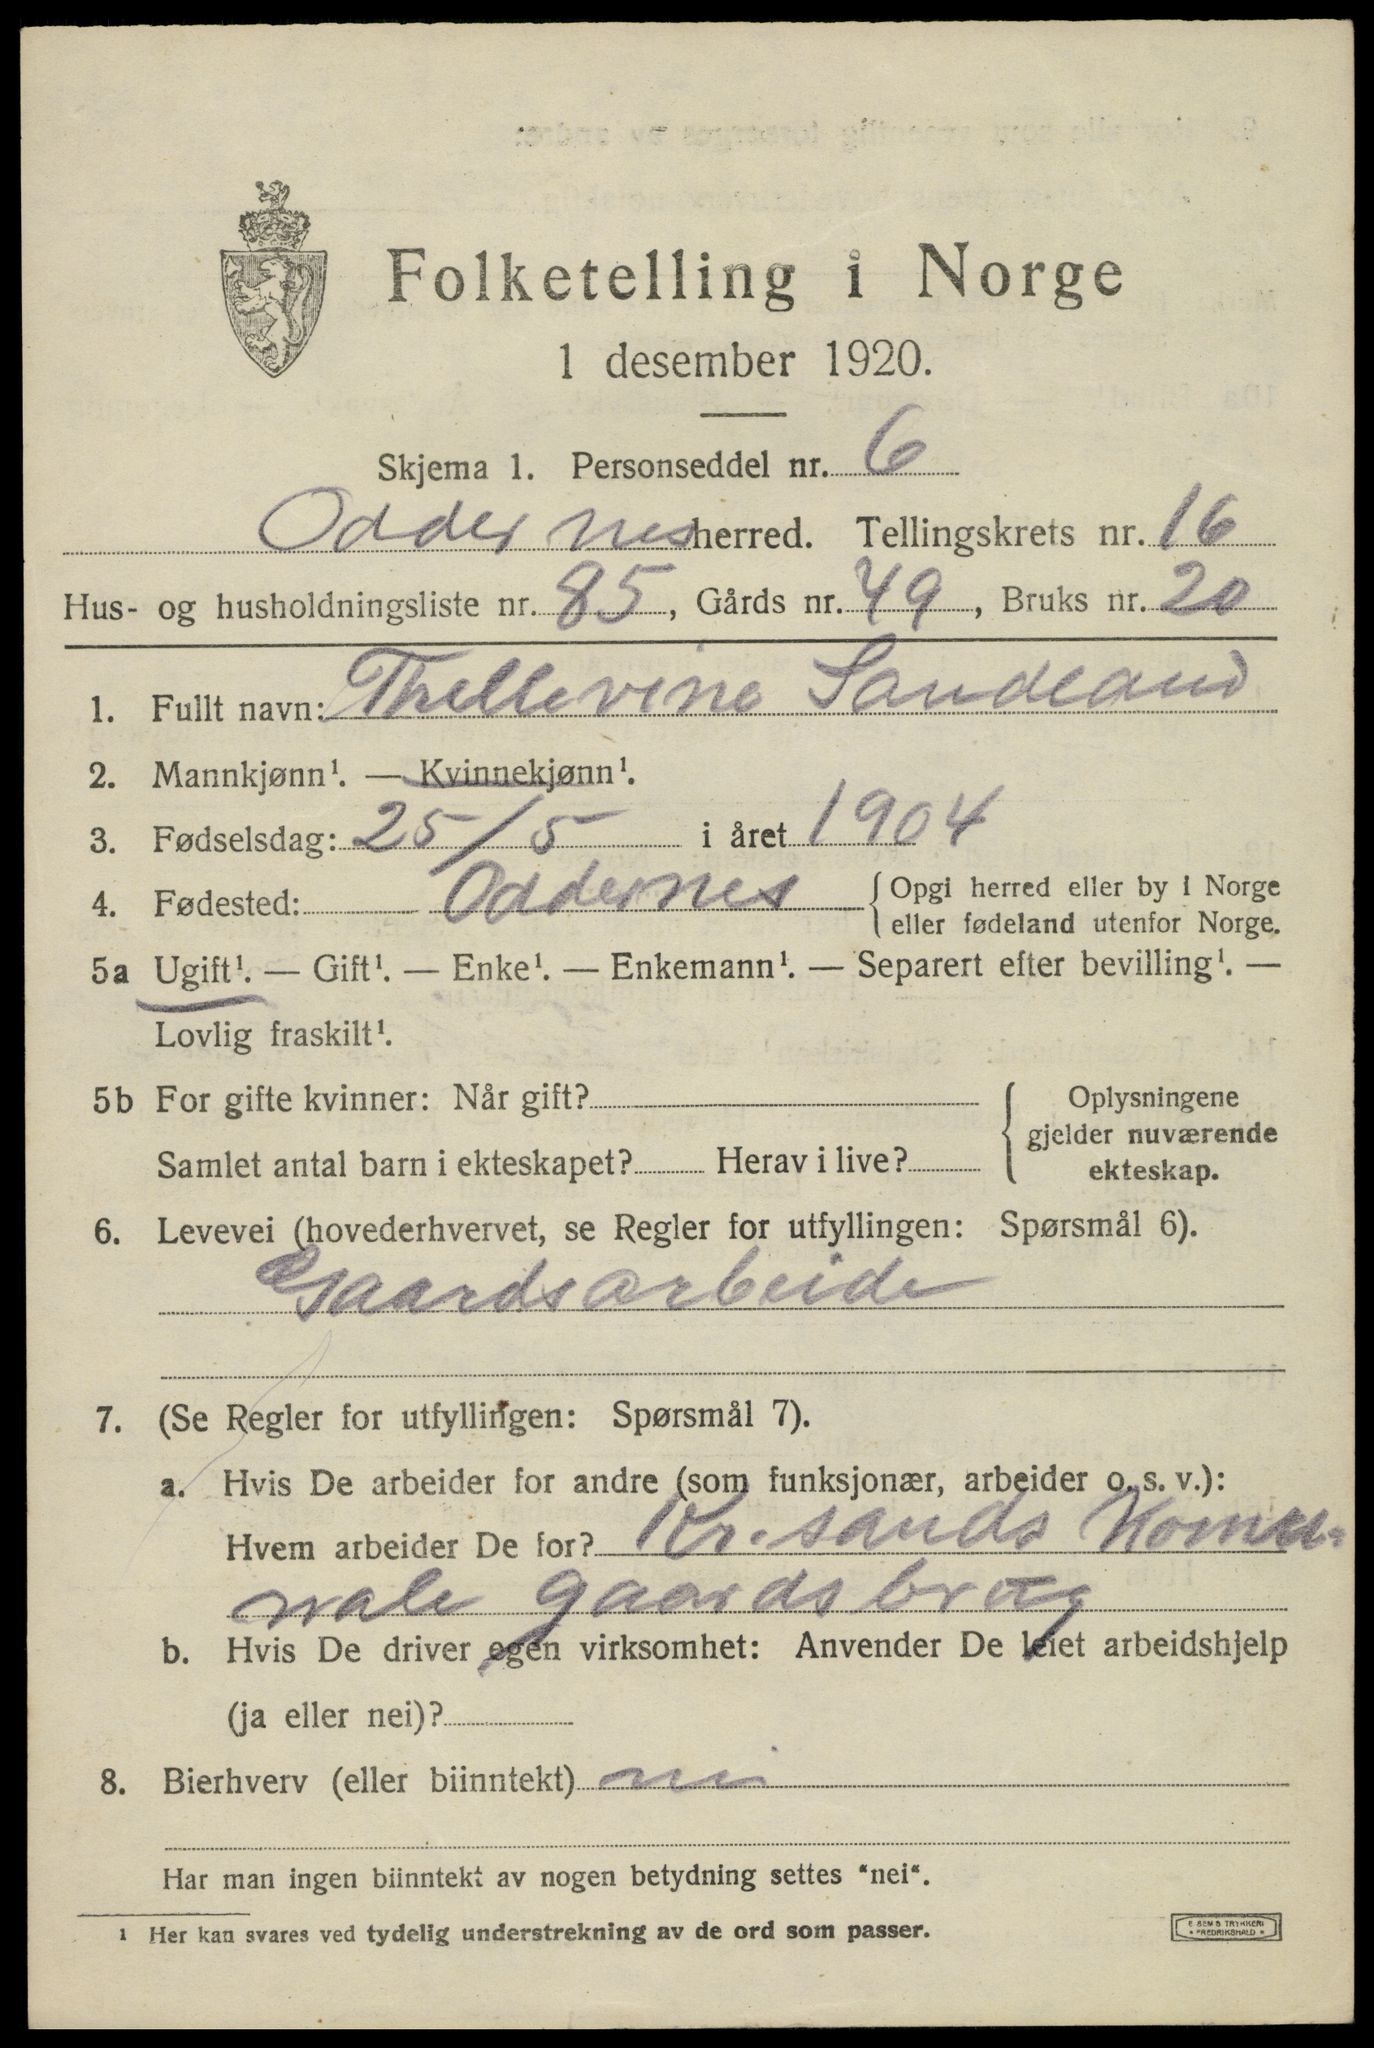 Folketelling i Norge
1 desember 1920.
Skjema 1. Personseddel nr. 6
Oddernes herred. Tellingskrets nr. 16
Hus- og husholdningsliste nr. 85, Gårds nr. 49, Bruks nr. 20
1. Fullt navn: Thellevine Sandland
2. Mannkjønn¹. — Kvinnekjønn¹.
3. Fødselsdag: 25/5 i året 1904
4. Fødested: Oddernes { Opgi herred eller by i Norge
eller fødeland utenfor Norge.
5a Ugift¹. — Gift¹. — Enke¹. — Enkemann¹. — Separert efter bevilling¹. —
Lovlig fraskilt¹.
5b For gifte kvinner: Når gift?
Samlet antal barn i ekteskapet? Herav i live?
{ Oplysningene
gjelder nuværende
ekteskap.
6. Levevei (hovederhvervet, se Regler for utfyllingen: Spørsmål 6).
Gaardsarbeide
7. (Se Regler for utfyllingen: Spørsmål 7).
a. Hvis De arbeider for andre (som funksjonær, arbeider o. s. v.):
Hvem arbeider De for? Kr.sands Komu-
nale gaardsbrug
b. Hvis De driver egen virksomhet: Anvender De leiet arbeidshjelp
(ja eller nei)?
8. Bierhverv (eller biinntekt) nei
Har man ingen biinntekt av nogen betydning settes “nei“.
¹ Her kan svares ved tydelig understrekning av de ord som passer.
E. SEM'S TRYKKERI
* FREDRIKSHALD *